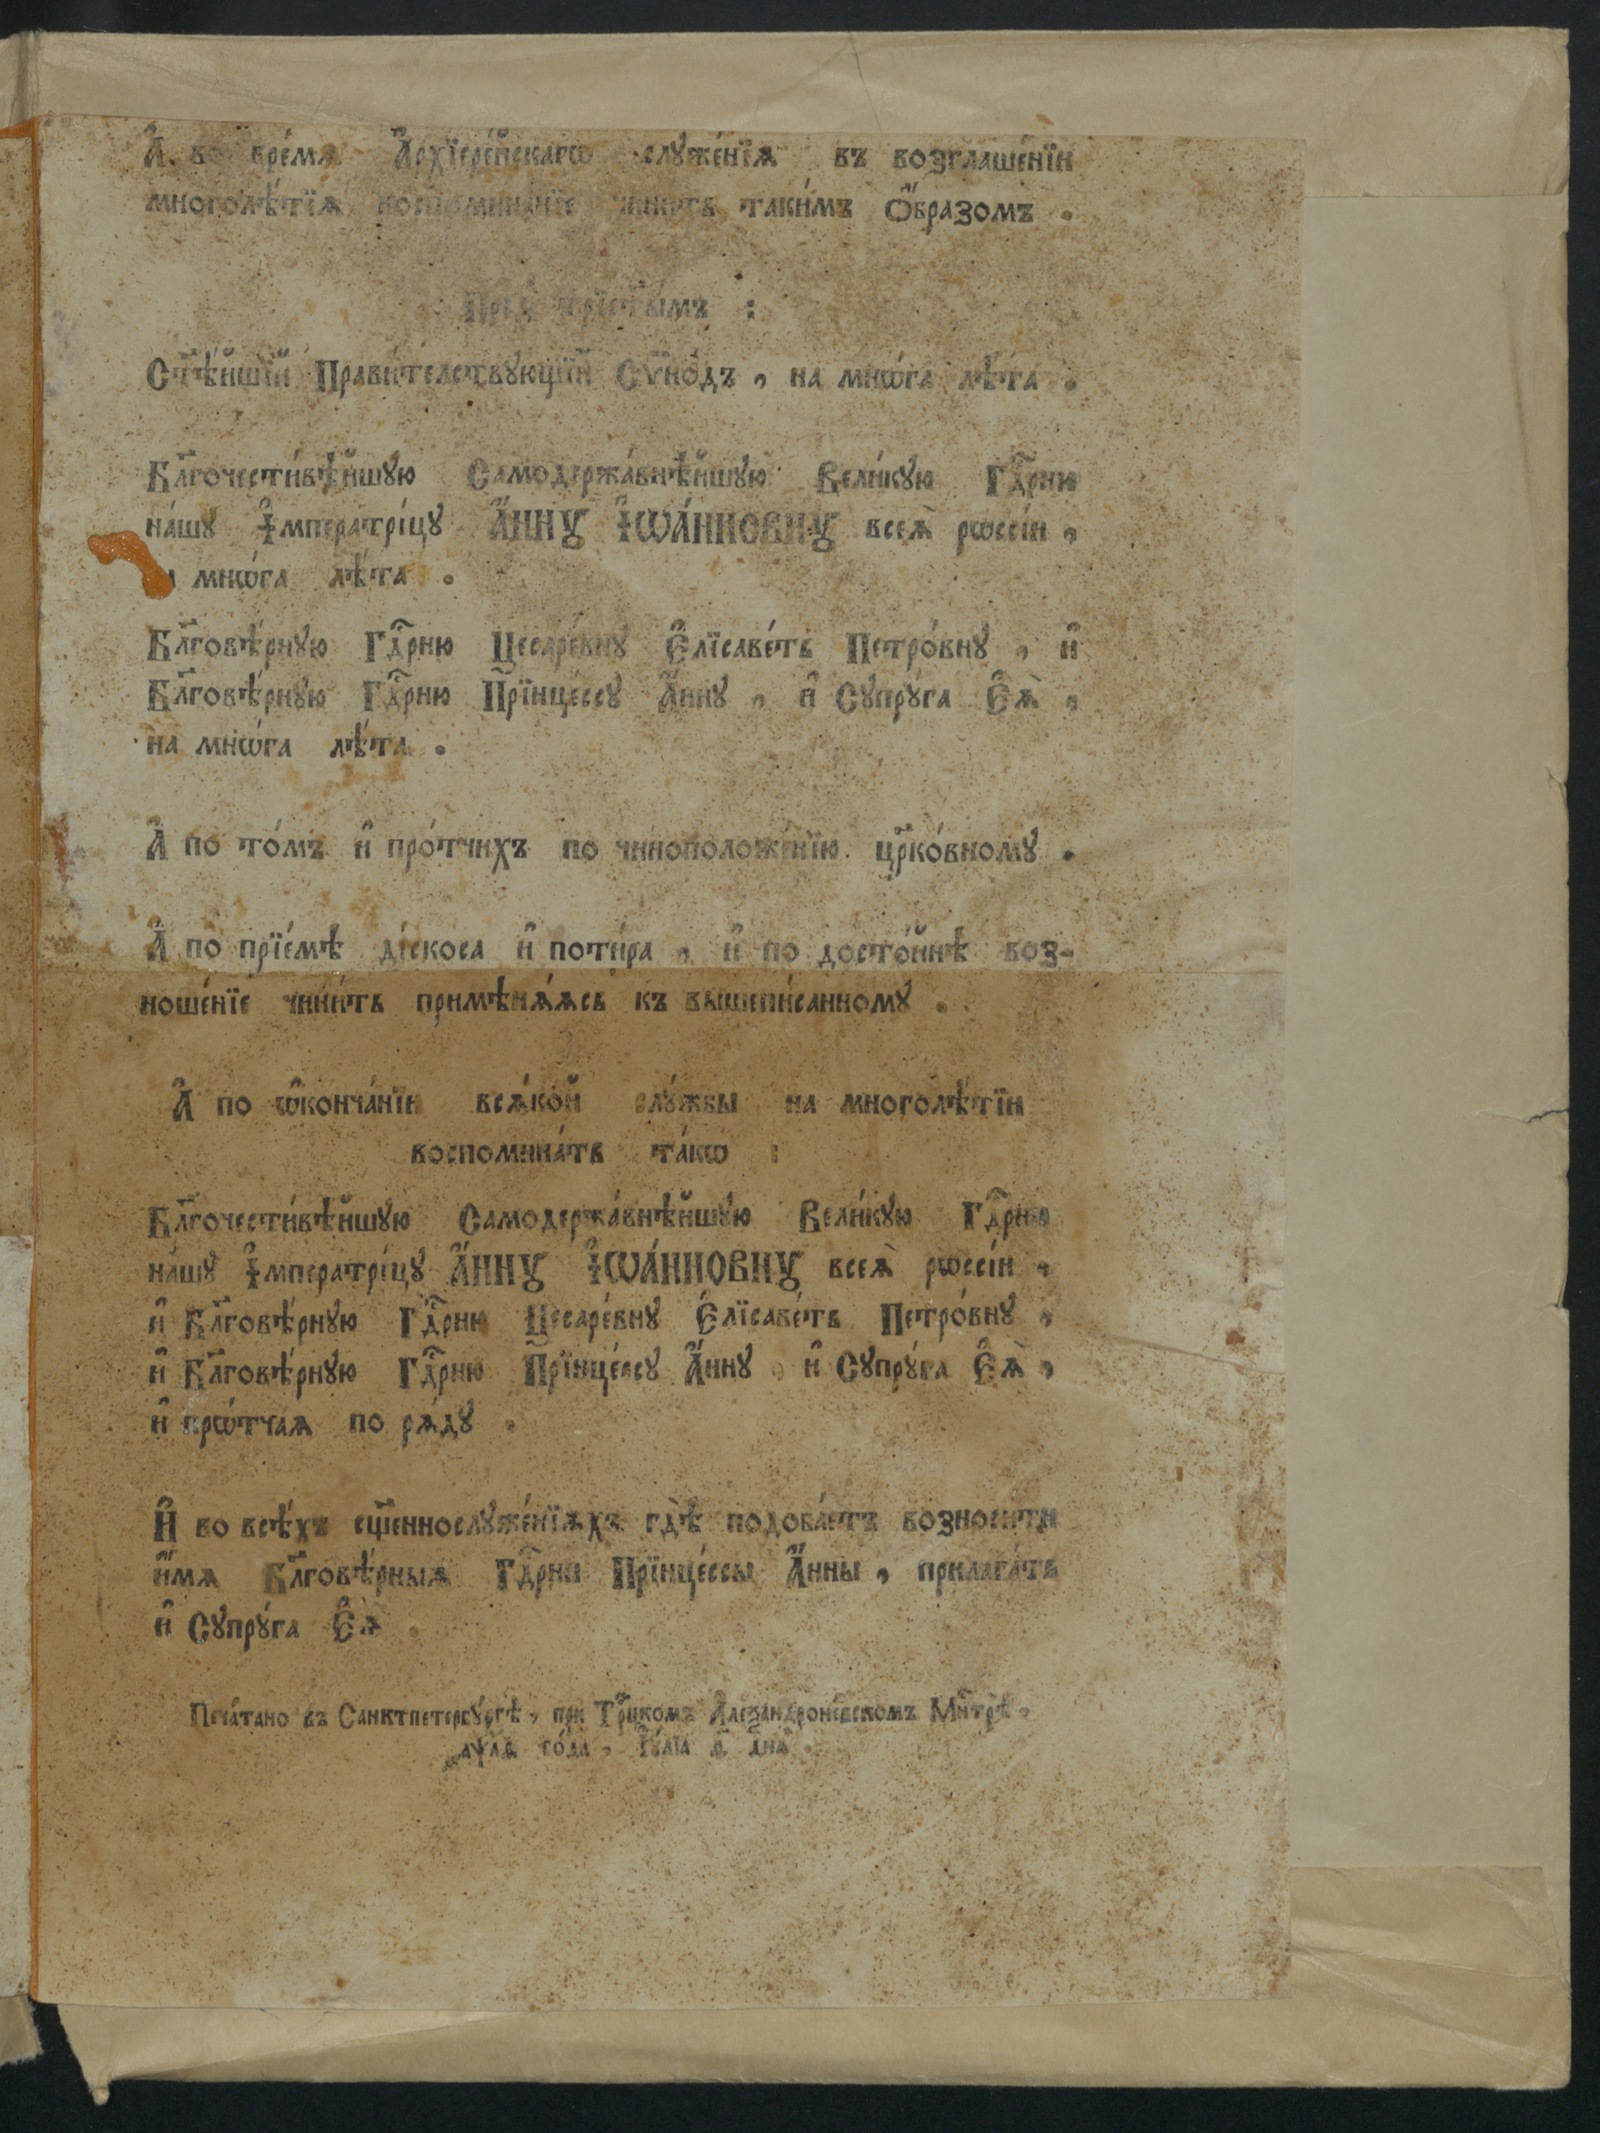 А҆ во вре́мѧ А҆рхїере́йскагѡ слꙋже́нїѧ въ возглаше́нїи
многолѣ́тїѧ воспомина́нїе чини́ть таки́мъ ѻ҆́бразомъ .
Ст҃ѣ́йшїй Прави́телствꙋющїй Сѷно́дъ , на мнѡ́га лѣ́та .
Бл҃гочести́вѣйшꙋю Самодержа́внѣйшꙋю Вели́кꙋю Гдⷭ҇рню
на́шꙋ І҆мператрі́цꙋ А҆́ННꙋ І҆ѠА́ННОВНꙋ всеѧ̀ рѡссі́и ,
мнѡ́га лѣ́та .
Бл҃говѣ́рнꙋю Гдⷭ҇рню Цесаре́внꙋ Є҆лїсаве́тъ Петро́внꙋ , и҆
Бл҃говѣ́рнꙋю Гдⷭ҇рню Прїнце́ссꙋ А҆́ннꙋ , и҆ Сꙋпрꙋ́га Є҆ѧ̀ ,
на мнѡ́га лѣ́та .
А҆ по то́мъ и҆ про́тчихъ по чиноположе́нїю црⷪ҇ко́вномꙋ .
А҆ по прїе́мѣ ді́скоса и҆ поти́ра , и҆ по досто́йнѣ воз-
ноше́нїе чини́ть примѣнѧ́ѧсь къ вышепи́санномꙋ .
А҆ по ѡ҆конча́нїи всѧ́кой слꙋ́жбы на многолѣ́тїи
воспомина́ть та́кѡ :
Бл҃гочести́вѣйшꙋю Самодержа́внѣйшꙋю Вели́кꙋю Гдⷭ҇рню
на́шꙋ І҆мператрі́цꙋ А҆́ННꙋ І҆ѠА́ННОВНꙋ всеѧ̀ рѡссі́и ,
и҆ Бл҃говѣ́рнꙋю Гдⷭ҇рню Цесаре́внꙋ Є҆лїсаве́тъ Петро́внꙋ ,
и҆ Бл҃говѣ́рнꙋю Гдⷭ҇рню Прїнце́ссꙋ А҆́ннꙋ , и҆ Сꙋпрꙋ́га Є҆ѧ̀ ,
и҆ прѡ́тчаѧ по рѧ́дꙋ .
И҆ во всѣ́хъ сщ҃еннослꙋже́нїѧхъ гдѣ̀ подоба́етъ возноси́ти
и҆́мѧ Бл҃говѣ́рныѧ Гдⷭ҇рни Прїнце́ссы А҆́нны , прилага́ть
и҆ Сꙋпрꙋ́га Є҆ѧ̀ .
Печа́тано въ Санктпетербꙋ́ргѣ , при Трⷪ҇цкомъ А҆леѯандроне́вскомъ Мн҃трѣ̀ ,
го́да , І҆ꙋ́лїа дня̀ .